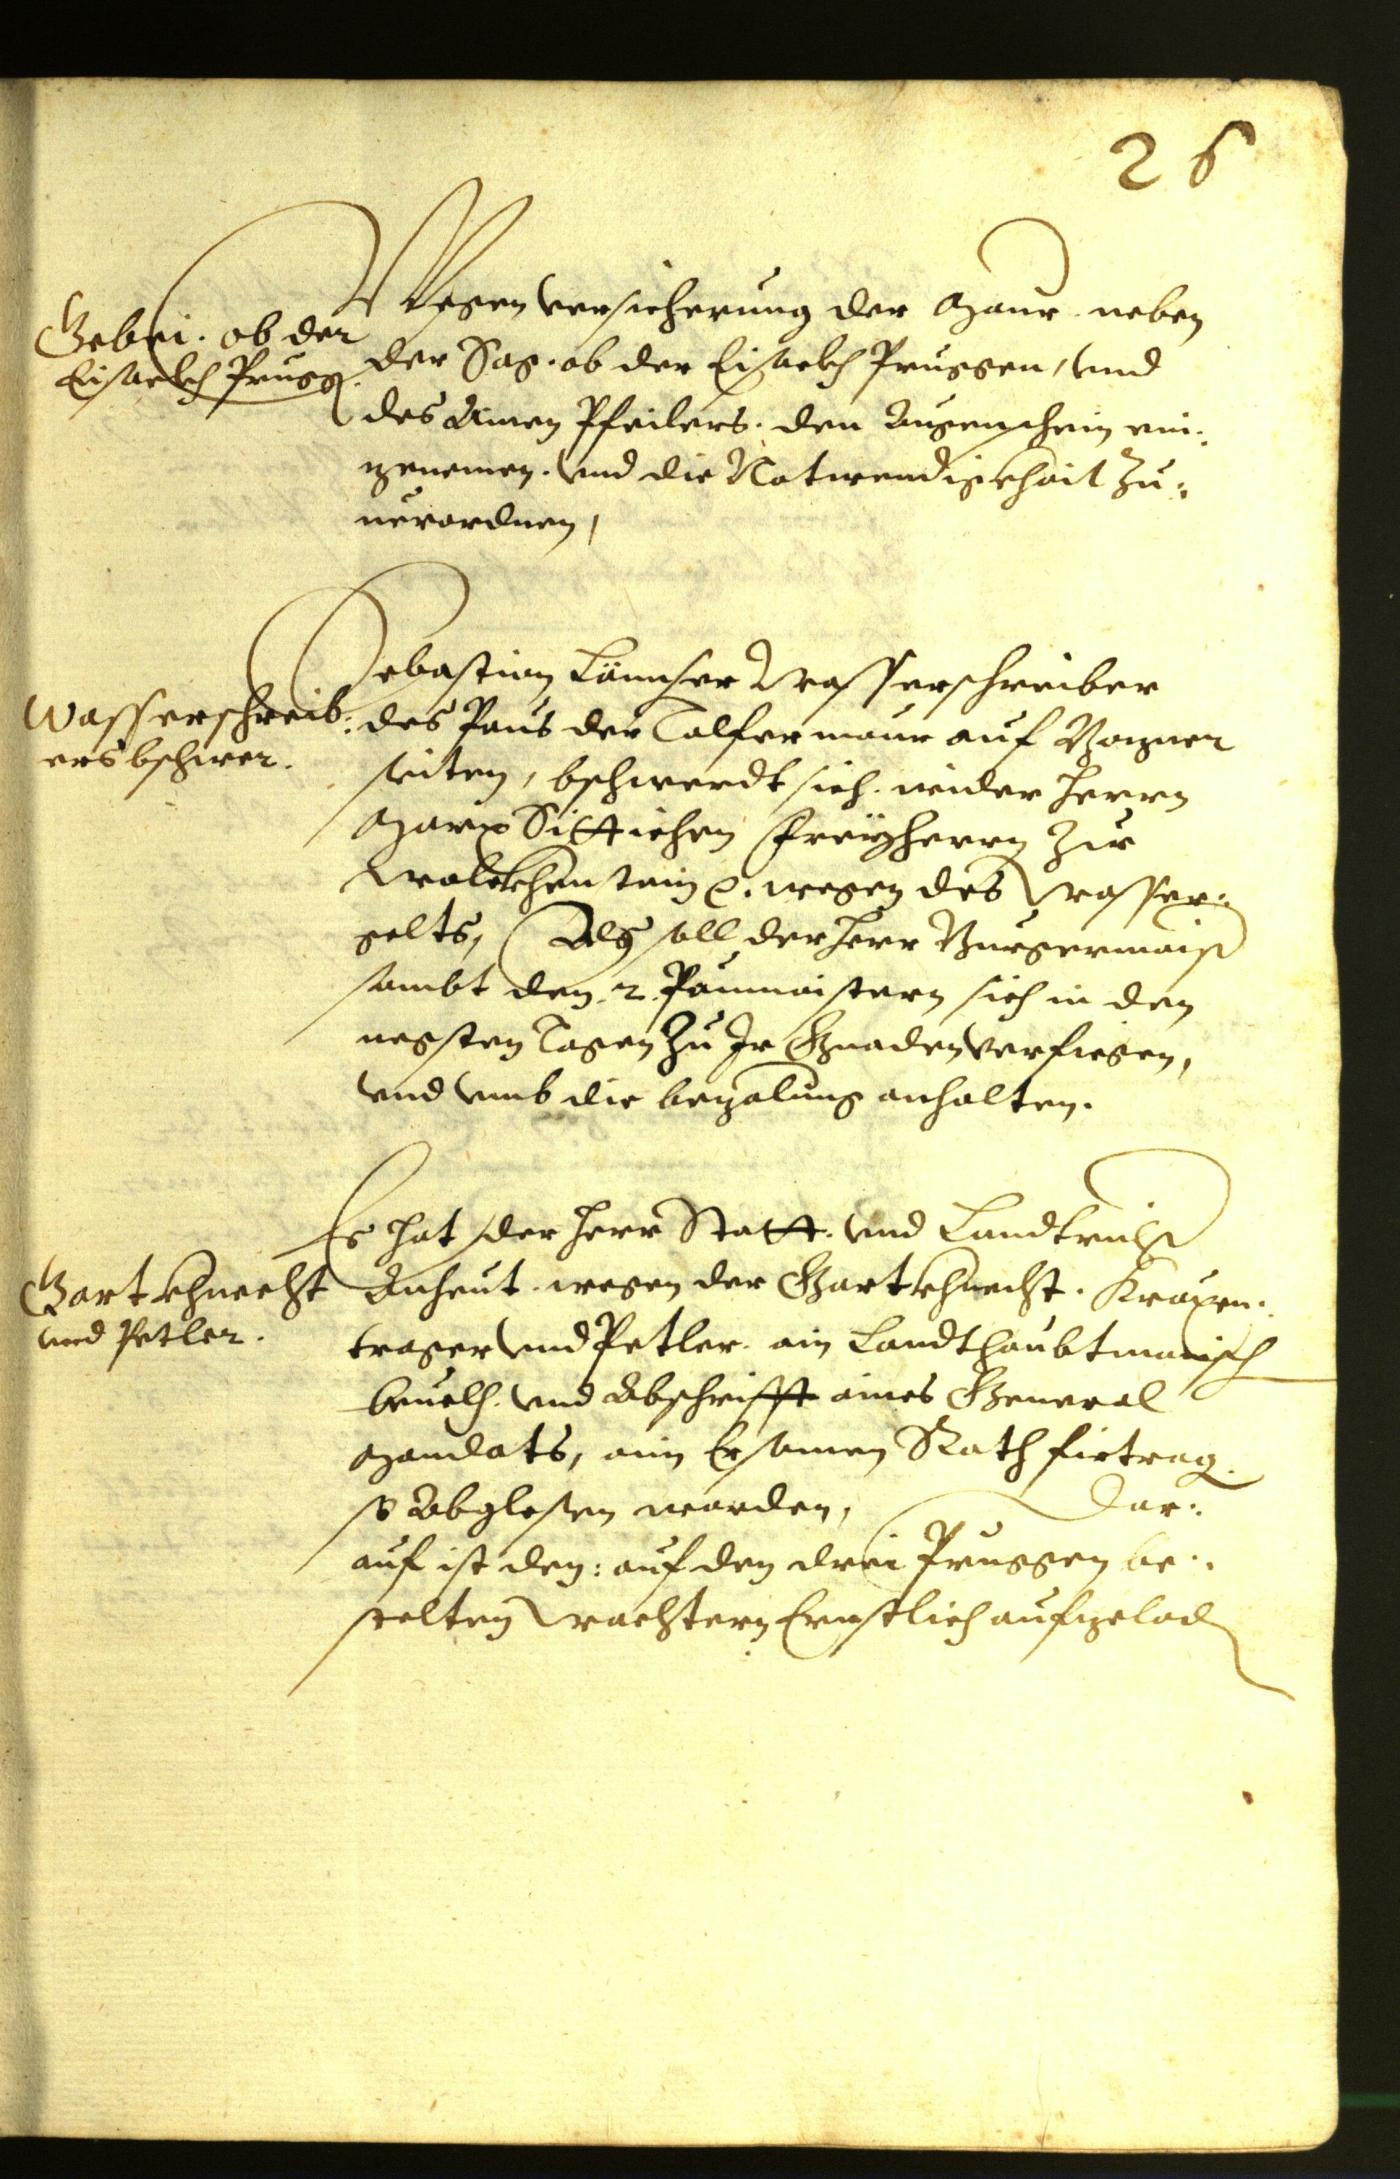 26
Gebei. ob der
Eisackh Prugg.
Wegen versicherung der Maur. neben
der Sag. ob der Eisackh Pruggen, vnd
des Ainen Pfeilers. den Augenschein ein:
genomen. vnd die Notwendigkhait Zu:
uerordnen,
Wasserschreib:
ers bschwer.
Sebastian Wasserschreiber
des Paus der Talfermaur auf Bozner
seiten, bschwerdt sich. wider Herrn
Marx Sittichen Freyherrn Zu
Wolckhenstain wegen des Wasser:
gelts, Als soll der Herr Burgermaister
sambt den 2 Paumaistern sich in den
negsten Tagen Zu Ir Gnaden verfiegen,
vnd vmb die bezalung anhalten.
Gartkhnecht
vnd Petler.
Es hat der Herr Statt. vnd Landtrichter
Anheut. wegen der Gartkhnecht. Kraxen:
trager vnd Petler. ain Landtshaubtmanisch
beuelh. vnd Abschrifft aines General
Mandats, aim Ersamen Rath firtrag.
so Abglesen worden, Dar:
auf ist den: auf den drei Pruggen be:
stelten Wachtern Ernstlich aufgeladen